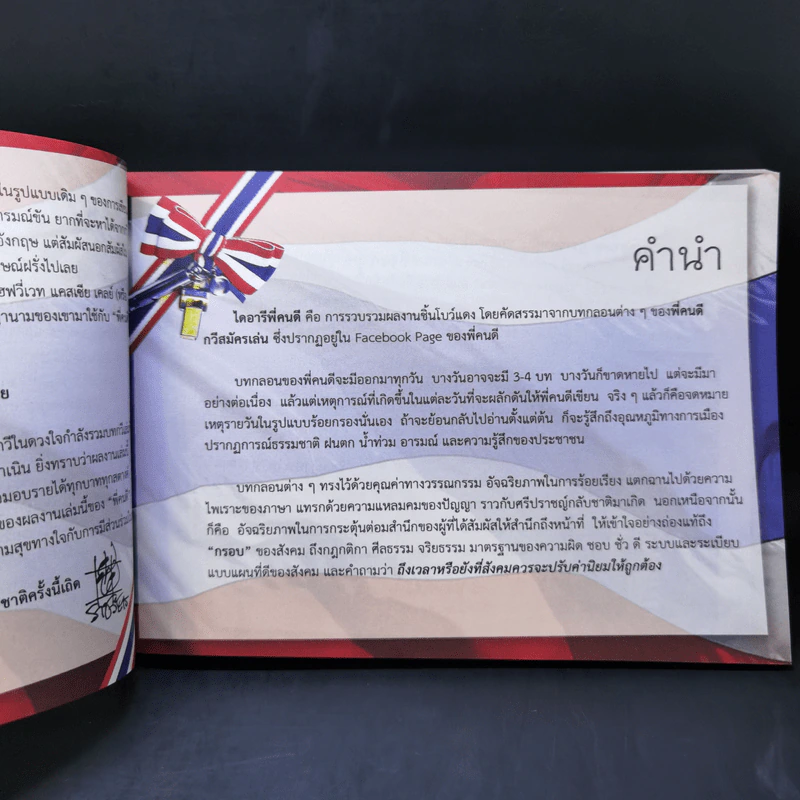 ในรูปแบบเดิม ๆ ของการ
ารมณ์ขัน ยากที่จะหาได้จาก
อังกฤษ แต่สัมผัสนอก
ษณ์ฝรั่งไปเลย
ฮฟวี่เวท แคสเซียส เคลย์
านามของเขามาใช้กับ "พี่คนดี"
ย
าวีในดวงใจกำลังรวมบทกวี
าเนิน ยิ่งทราบว่าผลงานเล่มนี้
มอบรายได้ทุกบาททุกสตางค์
ของผลงานเล่มนี้ของ "พี่คนดี"
ามสุขทางใจกับการมีส่วนร่วม
ชาติครั้งนี้เถิด
คำนำ
ไดอารีพี่คนดี คือ การรวบรวมผลงานชิ้นโบว์แดง โดยคัดสรรมาจากบทกลอนต่าง ๆ ของพี่คนดี
กวีสมัครเล่น ซึ่งปรากฏอยู่ใน Facebook Page ของพี่คนดี
บทกลอนของพี่คนดีจะมีออกมาทุกวัน บางวันอาจจะมี 3-4 บท บางวันก็ขาดหายไป แต่จะมีมา
อย่างต่อเนื่อง แล้วแต่เหตุการณ์ที่เกิดขึ้นในแต่ละวันที่จะผลักดันให้พี่คนดีเขียน จริง ๆ แล้วก็คือจดหมาย
เหตุรายวันในรูปแบบร้อยกรองนั่นเอง ถ้าจะย้อนกลับไปอ่านตั้งแต่ต้น ก็จะรู้สึกถึงอุณหภูมิทางการเมือง
ปรากฏการณ์ธรรมชาติ ฝนตก น้ำท่วม อารมณ์ และความรู้สึกของประชาชน
บทกลอนต่าง ๆ ทรงไว้ด้วยคุณค่าทางวรรณกรรม อัจฉริยภาพในการร้อยเรียง แตกฉานไปด้วยความ
ไพเราะของภาษา แทรกด้วยความแหลมคมของปัญญา ราวกับศรีปราชญ์กลับชาติมาเกิด นอกเหนือจากนั้น
ก็คือ อัจฉริยภาพในการกระตุ้นต่อมสำนึกของผู้ที่ได้สัมผัสให้สำนึกถึงหน้าที่ ให้เข้าใจอย่างถ่องแท้ถึง
"กรอบ" ของสังคม ถึงกฎกติกา ศีลธรรม จริยธรรม มาตรฐานของความผิด ชอบ ชั่ว ดี ระบบและระเบียบ
แบบแผนที่ดีของสังคม และคำถามว่า ถึงเวลาหรือยังที่สังคมควรจะปรับค่านิยมให้ถูกต้อง